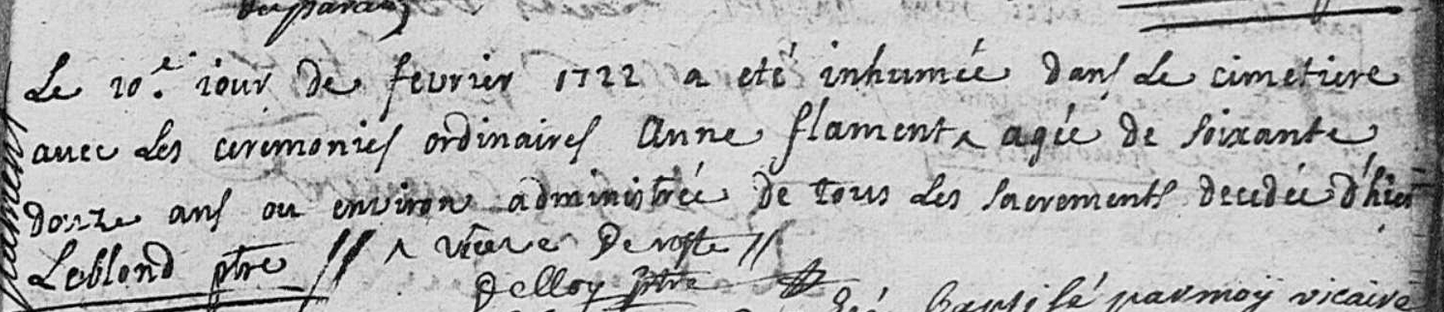 Le 10.e iour de fevrier 1722 a eté inhumée dans Le cimetiere
avec Les ceremonies ordinaires Anne flament ^ agée de soixante
douze ans ou environ administrée de tous Les sacrements decedée d'hier
Leblond ptre // ^ veuve De //
Delloy ptre
Baptisé par moy vicaire